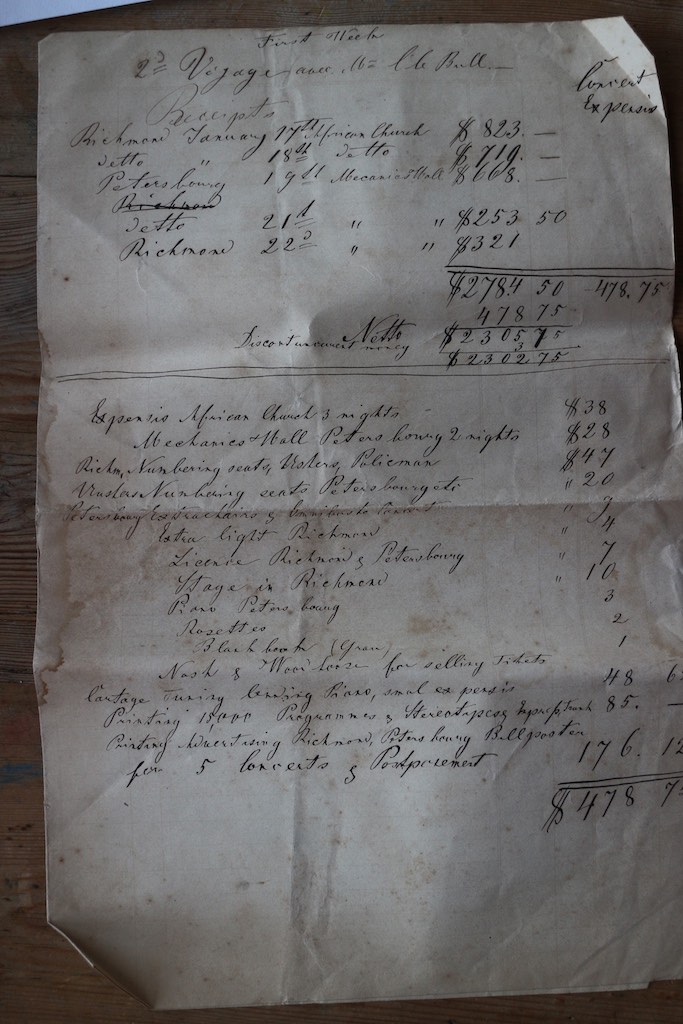 First Week
2d Voyage avec Mr Ole Bull. —
Concert
Expensis
Receipts
Richmond January 17th African Church $ 823. —
detto " 18th detto $ 719. —
Petersbourg 19th Mecanics Hall $ 668. —
Richmond
detto 21st " " $253 50
Richmond 22d " " $321
$2784 50 - 478. 75
478 75
Netto $2305 75
Discont uncurrent money 3
$2302 75
Expensis African Church 3 nights. $38
Mechanics Hall Petersbourg 2 nights $28
Richm, Numbering seats, Ushers, Policeman $47
Numbering seats Petersbourg etc " 20
Petersbourg Extrachairs & Omnibus to Concert "
Extra light Richmond 4
Licence Richmond & Petersbourg " 7
Stage in Richmond " 10
Piano Petersbourg 3
Rosettes 2
Blank book (Grau) 1
Nash & Woodhouse for selling Tickets
Cartage Tuning lending Piano, smal expensis 48 6
Printing 15,000 Programmes & Stereotypes 85. —
Printing Advertising Richmond, Petersbourg Billposter
for 5 Concerts & Postponement 176. 12
$ 478 7